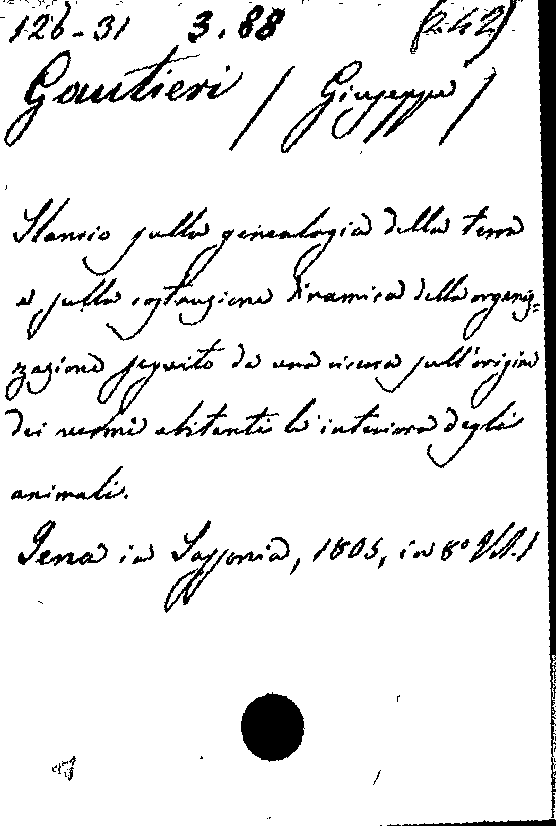 126-31 3.88 (2.42)
Gautieri / Giuseppe /
Slancio sulla genealogia della terra
e sulla costruzione dinamica della organiz=
zazione seguito da una ricerca sull'origine
dei vermi abitanti le interiora degli
animali.
Jena in Sassonia, 1805, in 8º Vol. 1